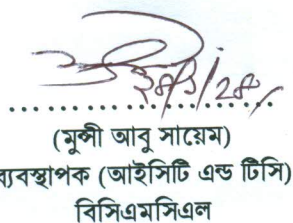 (মুন্সী আবু সায়েম)
ব্যবস্থাপক (আইসিটি এন্ড টিসি)
বিসিএমসিএল